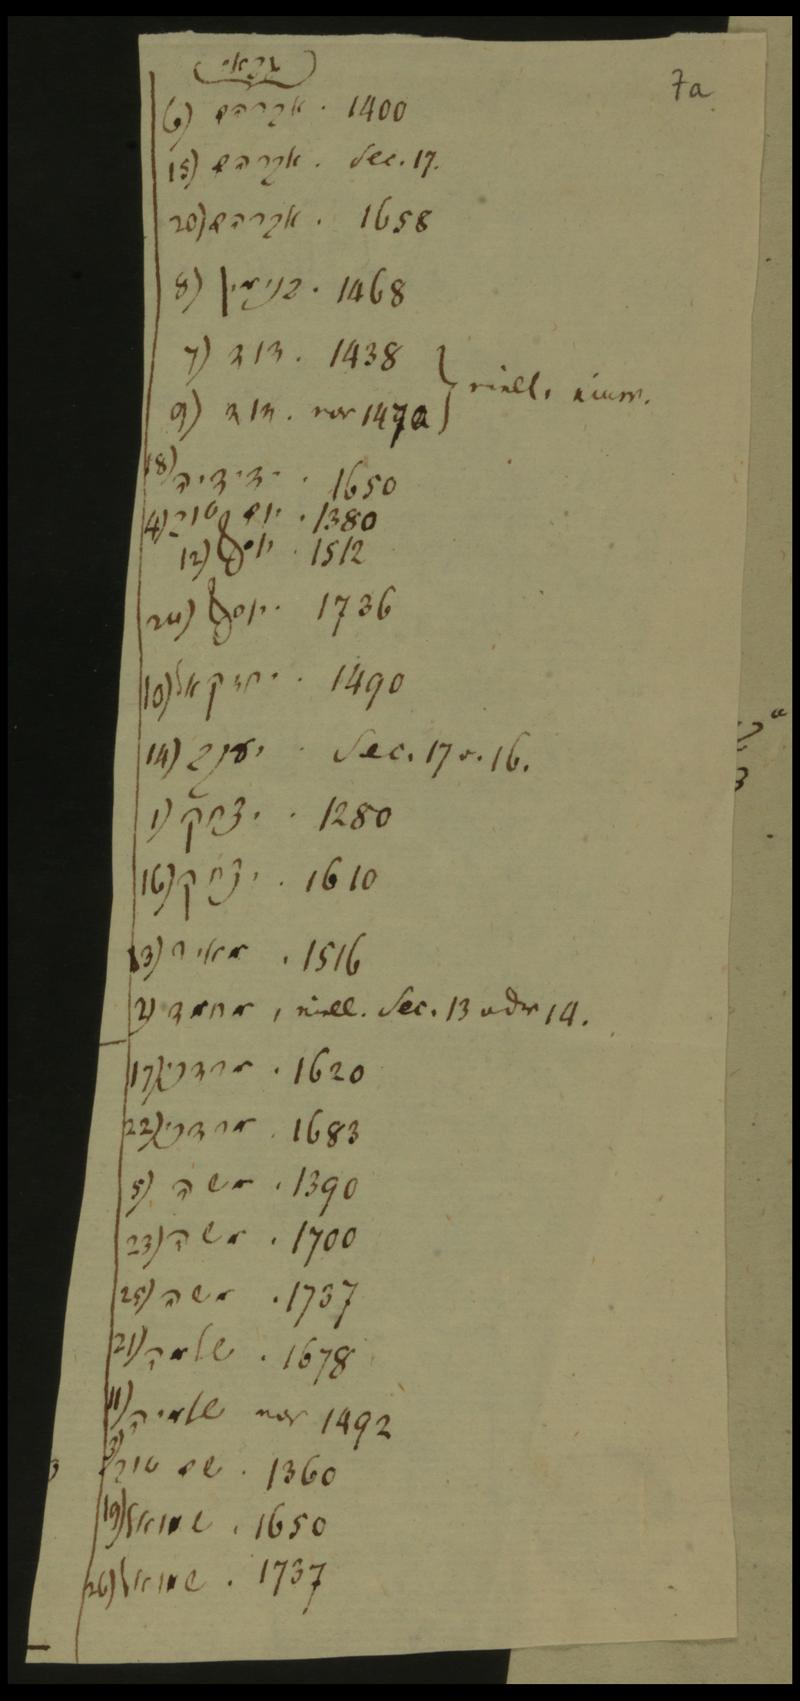 גבאי
7a
6) אברהם . 1400
15) אברהם . Sec. 17.
20) אברהם . 1658
8) בנימין . 1468
7) דוד . 1438
9) דוד . vor 1470 } viell. einer.
18) ידידיה . 1650
4) יום טוב . 1380
12) יוסף . 1512
24) יוסף . 1736
10) יחזקאל . 1490
14) יעקב . Sec. 17 o. 16.
1) יצחק . 1280
16) יצחק . 1610
13) מאיר . 1516
2) מחמד , viell. Sec. 13 oder 14.
17) מרדכי . 1620
22) מרדכי . 1683
5) משה . 1390
23) משה . 1700
25) משה . 1737
21) שלמה . 1678
11) שלמיה vor 1492
3) שם טוב . 1360
19) שמואל . 1650
26) שמואל . 1737